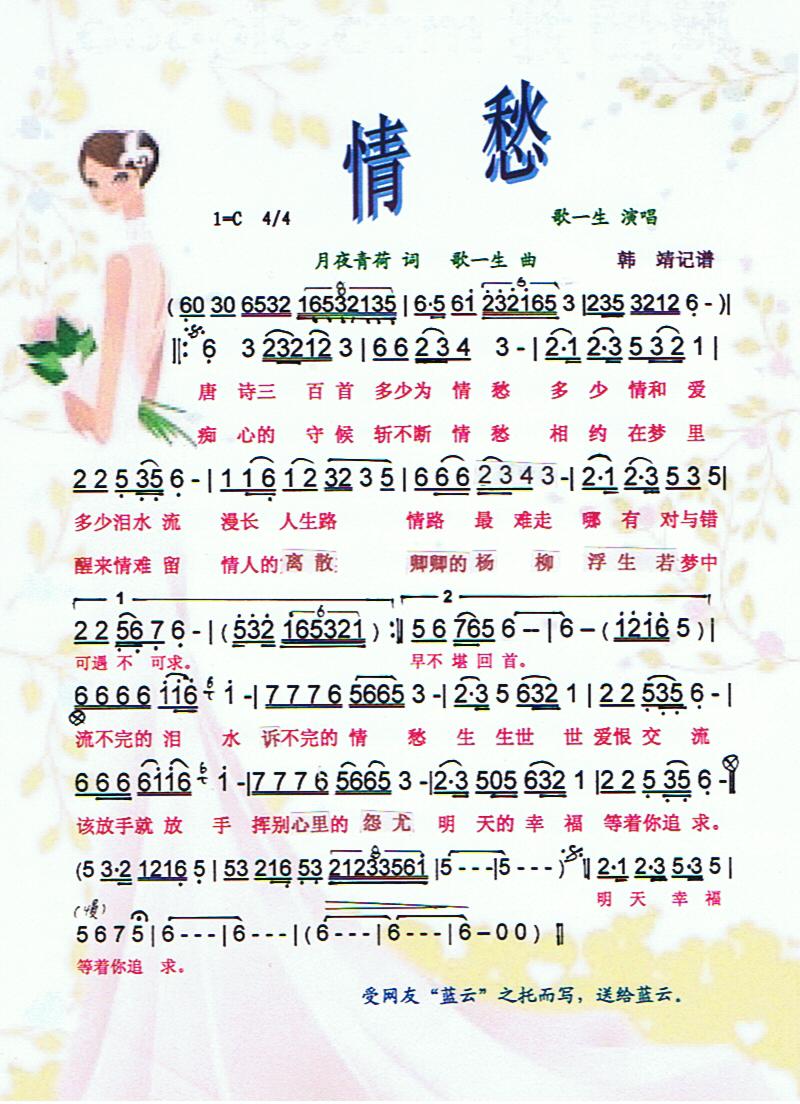 情 愁
1=C 4/4 歌一生 演唱
月夜青荷 词 歌一生 曲 韩 靖记谱
(60 30 6532 16532135 | 6·5 61 232165 3 | 235 3212 6 - )|
6 3 23212 3 | 6 6 2 3 4 3 - | 2·1 2·3 5 3 2 1 |
唐 诗三 百 首 多少为 情 愁 多 少 情和 爱
痴 心的 守 候 斩不断 情 愁 相 约 在梦 里
2 2 5 35 6 - | 1 1 6 1 2 32 3 5 | 6 6 6 2 3 4 3 - | 2·1 2·3 5 3 5 |
多少泪水 流 漫长 人生路 情路 最 难走 哪 有 对与错
醒来情难 留 情人的 离 散 卿卿的 杨 柳 浮 生 若 梦中
1 2
2 2 56 7 6 - | (532 165321 ) :|| 5 6 765 6 - - | 6 - (1216 5 )|
可遇 不 可求。 早不 堪 回 首。
6 6 6 6 116 1 - | 7 7 7 6 5665 3 - | 2·3 5 632 1 | 2 2 535 6 - |
流不完的 泪 水 诉不完的 情 愁 生 生世 世 爱恨 交 流
6 6 6 6116 1 -|7 7 7 6 5665 3 -|2·3 505 632 1 |2 2 5 35 6 -
该放手就 放 手 挥别心里的 怨 尤 明 天的 幸 福 等着你追 求。
(5 3·2 1216 5 | 53 216 53 21233561 |5 - - -|5 - - - ) 2·1 2·3 5·3 5 |
明 天 幸 福
(慢)
5 6 7 5 | 6 - - - | 6 - - - | (6 - - - | 6 - - - | 6 - 0 0 )
等着你追 求。
受网友“蓝云”之托而写，送给蓝云。